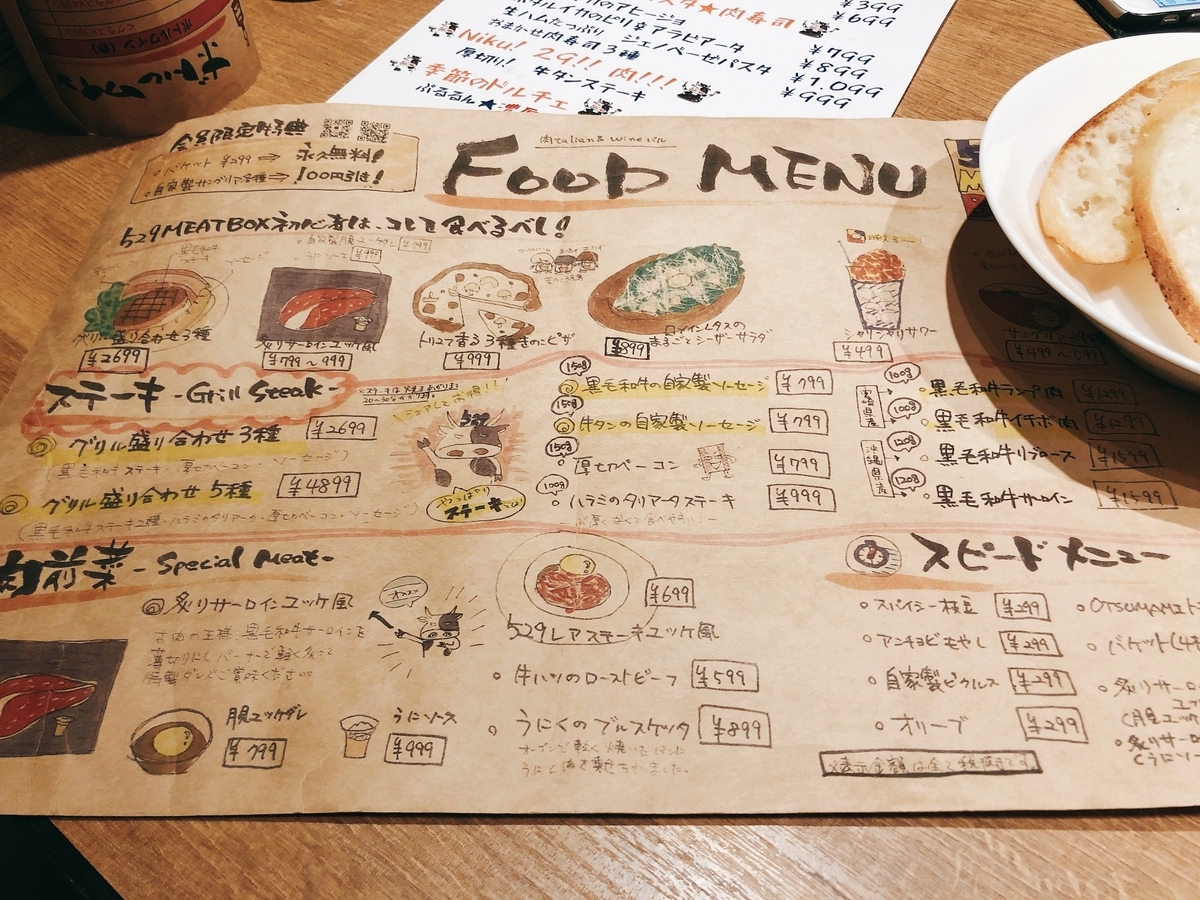 肉寿司
¥399
¥699
のアヒージョ
ホタルイカのピリ辛アラビアータ ¥799
生ハムたっぷり ジェノベーゼパスタ ¥899
おまかせ肉寿司3種 ¥1,099
Niku! 29!! 肉!!!
厚切り! 牛タンステーキ ¥999
季節のドルチェ
ぷるるん★
会員限定特典
・バケット ¥299 ⇒ 永久無料!
・自家製サングリア各種 ⇒ 100円引き!
肉Italian & wine バル
FOOD MENU
529 MEATBOX初心者は、コレを食べるべし!
グリル盛り合わせ3種
¥2699
炙りサーロインユッケ風
¥799~999
トリュフ香る3種きのこピザ
¥999
まるごとシーザーサラダ
¥899
シャリシャリサワー
¥499
¥499~599
ステーキ -Grill Steak-
グリル盛り合わせ3種 ¥2699
(黒毛和牛ステーキ・厚切りベーコン・ソーセージ)
グリル盛り合わせ5種 ¥4899
(黒毛和牛ステーキ2種・ハラミのタリアータ・厚切りベーコン・ソーセージ)
やっぱりステーキっしょ
150g 黒毛和牛の自家製ソーセージ ¥799
150g 牛タンの自家製ソーセージ ¥799
150g 厚切ベーコン ¥799
100g ハラミのタリアータステーキ ¥999
宮崎県産
100g 黒毛和牛ランプ肉 ¥1299
100g 黒毛和牛イチボ肉 ¥1299
沖縄県産
120g 黒毛和牛リブロース ¥1599
120g 黒毛和牛サーロイン ¥1599
肉前菜 -Special Meat-
炙りサーロインユッケ風
お肉の王様、黒毛和牛サーロインを
薄切りにしバーナーで軽く炙って
特製ダレでご賞味ください。
オススメ
月見ユッケダレ
¥799
うにソース
¥999
¥699
529レアステーキユッケ風
牛ハツのローストビーフ ¥599
うにくのブルスケッタ ¥899
オーブンで軽く焼いたパンに
うにと肉を乗せちゃいました。
スピードメニュー
スパイシー枝豆 ¥299
アンチョビもやし ¥299
自家製ピクルス ¥299
オリーブ ¥299
OTSUMAMI
バケット(4
炙りサーロ
ユッ
(月見ユッ
炙りサーロ
(うにソー
※表示金額は全て税抜きです